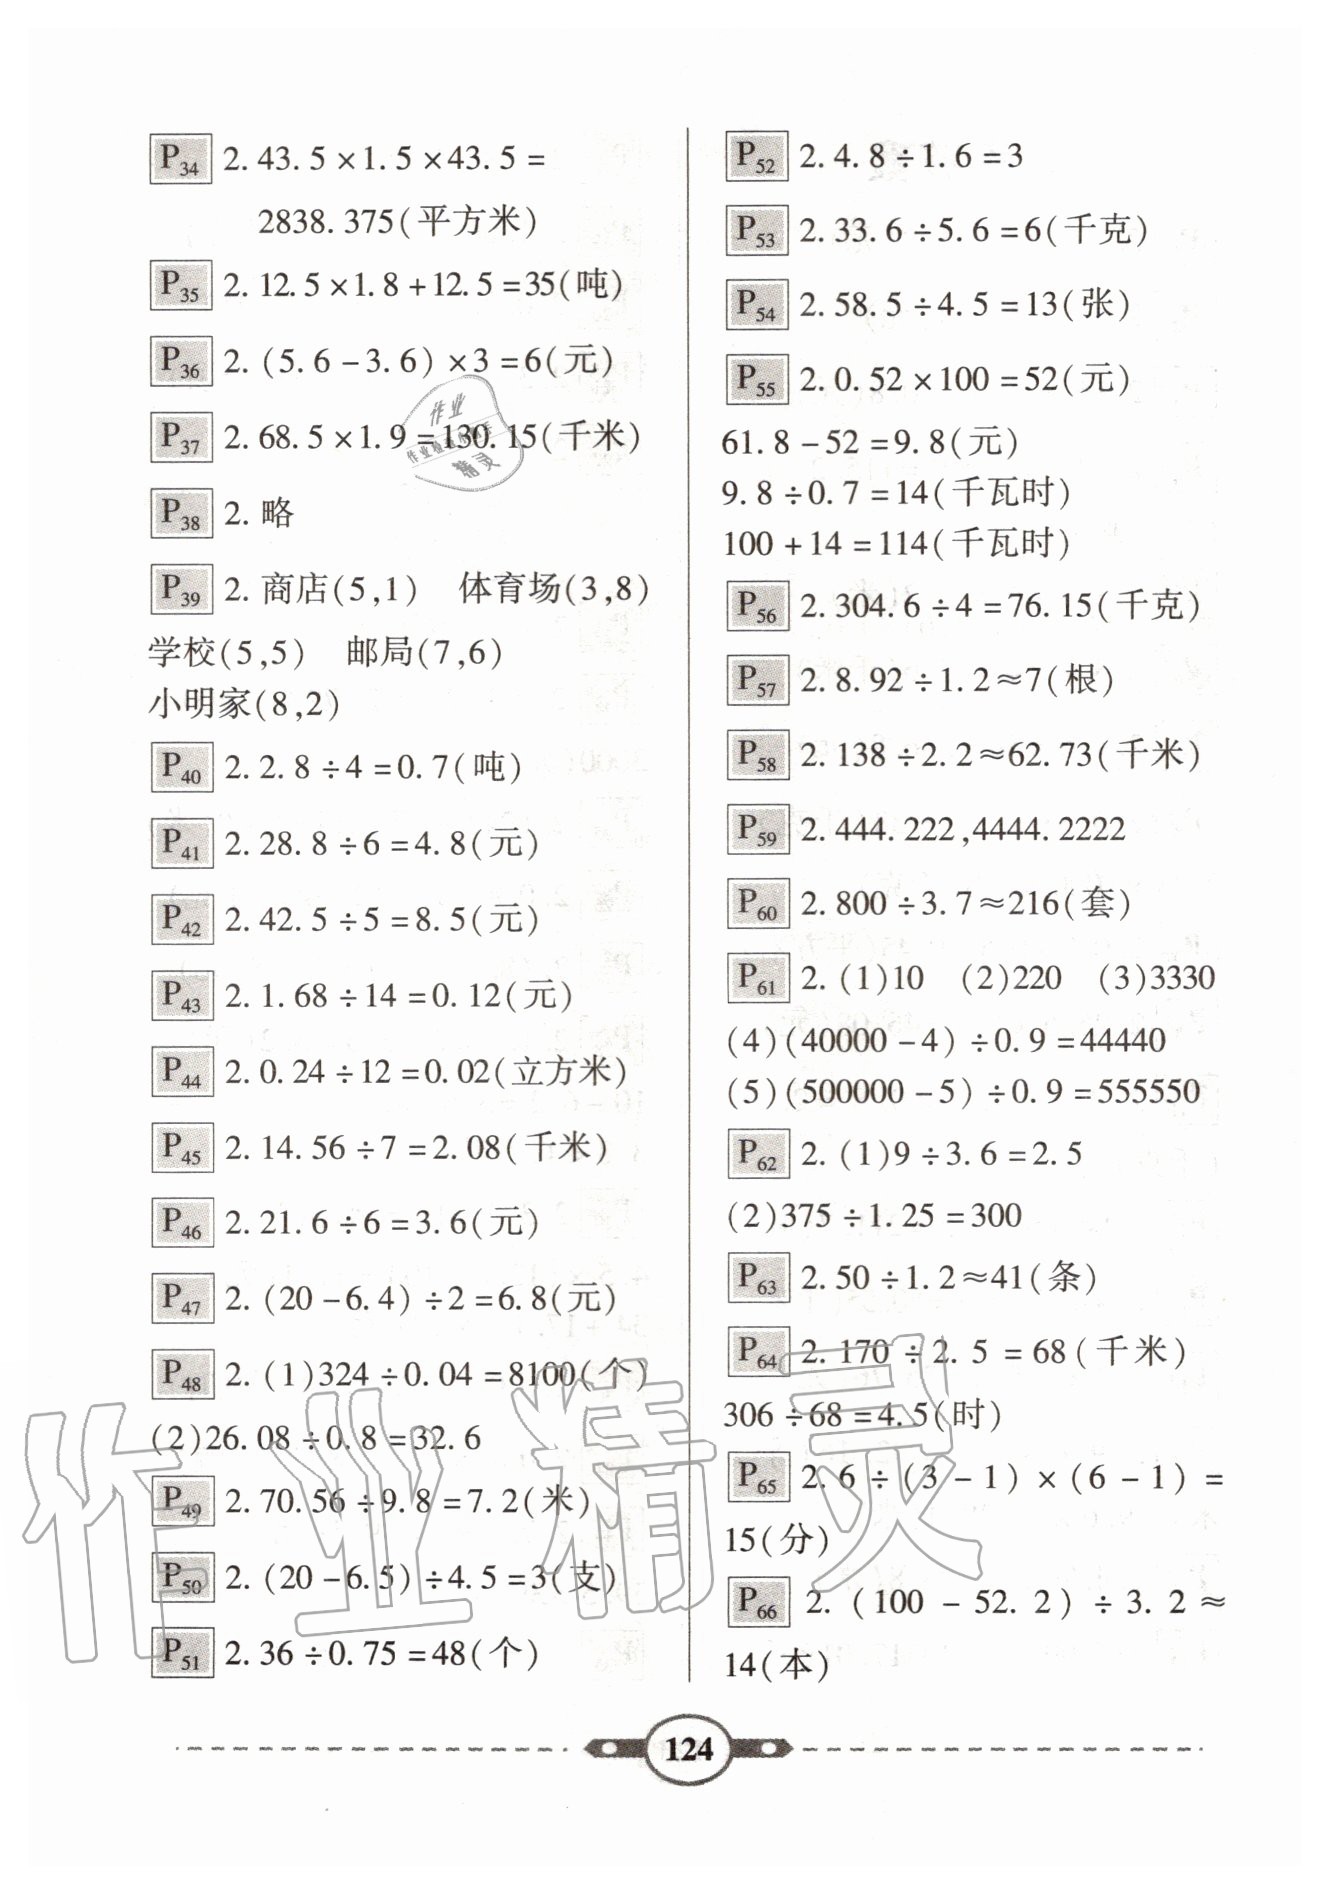 P34 2. 43.5×1.5×43.5=
2838.375(平方米)
P35 2. 12.5×1.8+12.5=35(吨)
P36 2. (5.6-3.6)×3=6(元)
P37 2. 68.5×1.9=130.15(千米)
P38 2. 略
P39 2. 商店(5,1) 体育场(3,8)
学校(5,5) 邮局(7,6)
小明家(8,2)
P40 2. 2.8÷4=0.7(吨)
P41 2. 28.8÷6=4.8(元)
P42 2. 42.5÷5=8.5(元)
P43 2. 1.68÷14=0.12(元)
P44 2. 0.24÷12=0.02(立方米)
P45 2. 14.56÷7=2.08(千米)
P46 2. 21.6÷6=3.6(元)
P47 2. (20-6.4)÷2=6.8(元)
P48 2. (1)324÷0.04=8100(个)
(2)26.08÷0.8=32.6
P49 2. 70.56÷9.8=7.2(米)
P50 2. (20-6.5)÷4.5=3(支)
P51 2. 36÷0.75=48(个)
P52 2. 4.8÷1.6=3
P53 2. 33.6÷5.6=6(千克)
P54 2. 58.5÷4.5=13(张)
P55 2. 0.52×100=52(元)
61.8-52=9.8(元)
9.8÷0.7=14(千瓦时)
100+14=114(千瓦时)
P56 2. 304.6÷4=76.15(千克)
P57 2. 8.92÷1.2≈7(根)
P58 2. 138÷2.2≈62.73(千米)
P59 2. 444.222,4444.2222
P60 2. 800÷3.7≈216(套)
P61 2. (1)10 (2)220 (3)3330
(4)(40000-4)÷0.9=44440
(5)(500000-5)÷0.9=555550
P62 2. (1)9÷3.6=2.5
(2)375÷1.25=300
P63 2. 50÷1.2≈41(条)
P64 2. 170÷2.5=68(千米)
306÷68=4.5(时)
P65 2. 6÷(3-1)×(6-1)=
15(分)
P66 2. (100-52.2)÷3.2≈
14(本)
124
作业精灵
作业
精灵